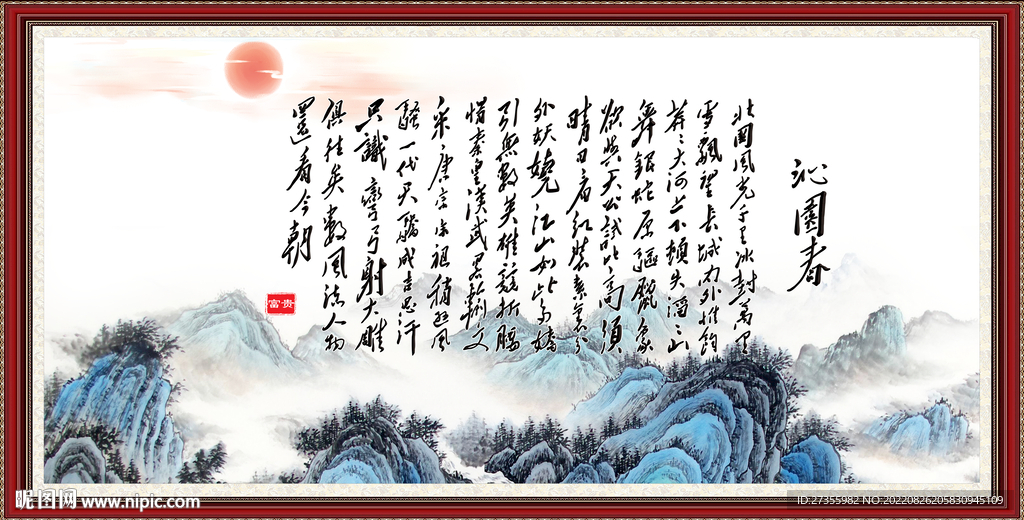 沁園春
北國風光千里冰封萬里
雪飄望長城內外惟餘
莽莽大河上下頓失滔滔山
舞銀蛇原驅蠟象
欲與天公試比高須
晴日看紅裝素裹分
外妖嬈江山如此多嬌
引無數英雄競折腰
惜秦皇漢武略輸文
采唐宗宋祖稍遜風
騷一代天驕成吉思汗
只識彎弓射大雕
俱往矣數風流人物
還看今朝
富贵
昵图网 www.nipic.com
ID:27355982 NO:20220826205830945109